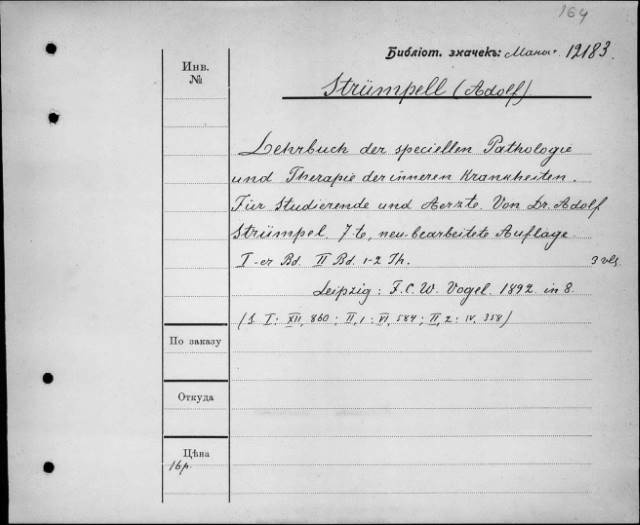 164
Библіот. значекъ: 12183.
Инв.
№
Strümpell (Adolf)
Lehrbuch der speciellen Pathologie
und Therapie der inneren Krankheiten.
Für Studierende und Aerzte. Von Dr. Adolf
Strümpel. 7-te, neu bearbeitete Auflage.
I-er Bd. II Bd. 1-2 Th. 3 vls
Leipzig: F.C.W. Vogel. 1892. in 8.
(S. I: XII, 860; II, 1: VI, 584; II, 2: IV, 358)
По заказу
Откуда
Цѣна
16 р.